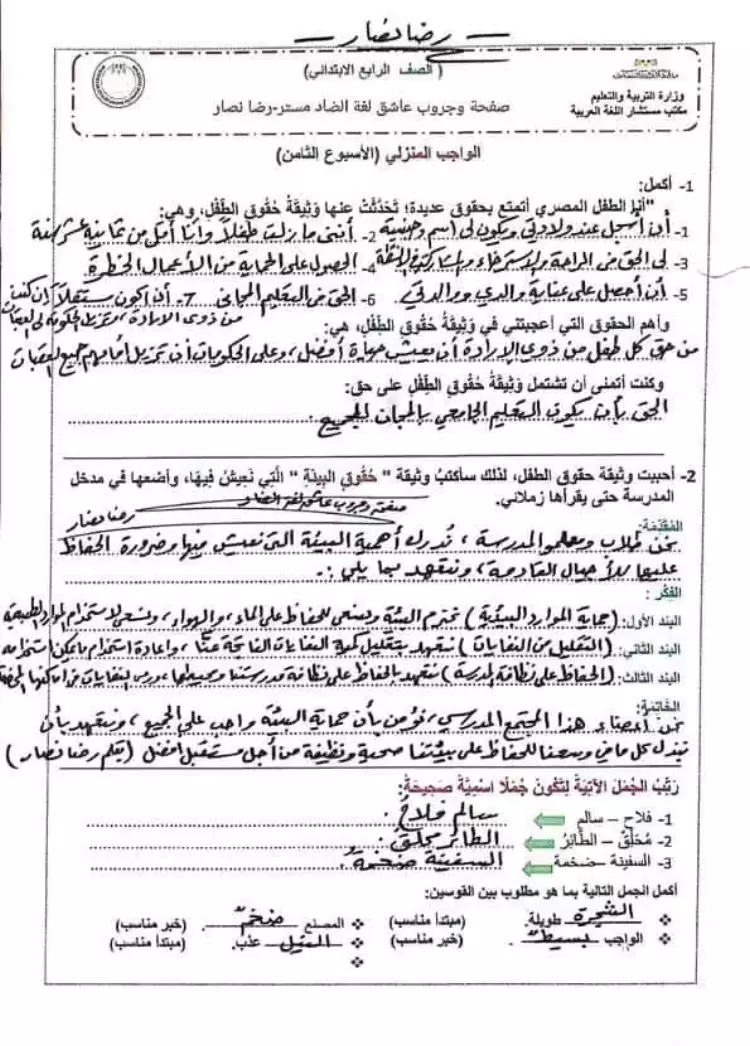 رضا نصار
(الصف الرابع الابتدائي)
وزارة التربية والتعليم
مكتب مستشار اللغة العربية
صفحة وجروب عاشق لغة الضاد مستر-رضا نصار
الواجب المنزلي (الأسبوع الثامن)
1- أكمل:
"أنا الطفل المصري أتمتع بحقوق عديدة؛ تَحَدَّثَتْ عنها وَثِيقَةُ حُقُوقِ الطِّفْلِ، وهي:
1- أن أسجل عند ولادتي ويكون لى اسم وجنسية 2- أننى ما زلت طفلاً وأنا أقل من ثمانية عشر سنة
3- لى الحق فى الراحة والاسترخاء والمشاركة فى الأنشطة 4- الحصول على الحماية من الأعمال الخطرة
5- أن أحصل على عناية والدي ووالدتي 6- الحق فى التعليم المجانى 7- أن أكون مستقلاً إن كنت
من ذوى الإرادة، وتزيل الحكومة لى العقبات
وأهم الحقوق التي أعجبتني في وَثِيقَةِ حُقُوقِ الطِّفْلِ، هي:
من حق كل طفل من ذوي الإرادة أن يعيش حياة أفضل، وعلى الحكومات أن تزيل أمامهم جميع العقبات
وكنت أتمنى أن تشتمل وَثِيقَةُ حُقُوقِ الطِّفْلِ على حق:
الحق بأن يكون التعليم الجامعي بالمجان للجميع
2- أحببت وثيقة حقوق الطفل، لذلك سأكتبُ وثيقة "حُقُوقِ البِيئَةِ" الَّتِي نَعِيشُ فِيهَا، وأضعها في مدخل
المدرسة حتى يقرأها زملائي.
صفحة وجروب عاشق لغة الضاد
رضا نصار
المُقَدِّمَة:
نحن طلاب ومعلمو المدرسة، نُدرك أهمية البيئة التى نعيش فيها وضرورة الحفاظ
عليها للأجيال القادمة، ونتعهد بما يلي :-
الفِكَر:
البند الأول: (حماية الموارد البيئية) نحترم البيئة ونسعى للحفاظ على الماء، والهواء، ونسعى لاستخدام الموارد الطبيعية
البند الثاني: (التقليل من النفايات) نتعهد بتقليل كمية النفايات الناتجة عنَّا، وإعادة استخدام ما يمكن استخدامه
البند الثالث: (الحفاظ على نظافة المدرسة) نتعهد بالحفاظ على نظافة مدرستنا ومحيطها، ورمى النفايات فى أماكنها المخصصة
الخَاتِمَة:
نحن أعضاء هذا المجتمع المدرسي، نؤمن بأن حماية البيئة واجب على الجميع، ونتعهد بأن
نبذل كل ما فى وسعنا للحفاظ على بيئتنا صحية ونظيفة من أجل مستقبل أفضل (بقلم رضا نصار)
رَتِّبْ الجُمَلَ الآتِيَةَ لِتَكُونَ جُمَلًا اسْمِيَّةً صَحِيحَةً:
1- فلاح – سالم سالم فلاحٌ.
2- مُحَلِّقٌ – الطَّائِرُ الطائر محلقٌ.
3- السفينة –ضخمة السفينة ضخمةٌ
أكمل الجمل التالية بما هو مطلوب بين القوسين:
الشجرة طويلة. (مبتدأ مناسب) المصنع ضخمٌ. (خبر مناسب)
الواجب بسيطٌ. (خبر مناسب) النيل عذب. (مبتدأ مناسب)